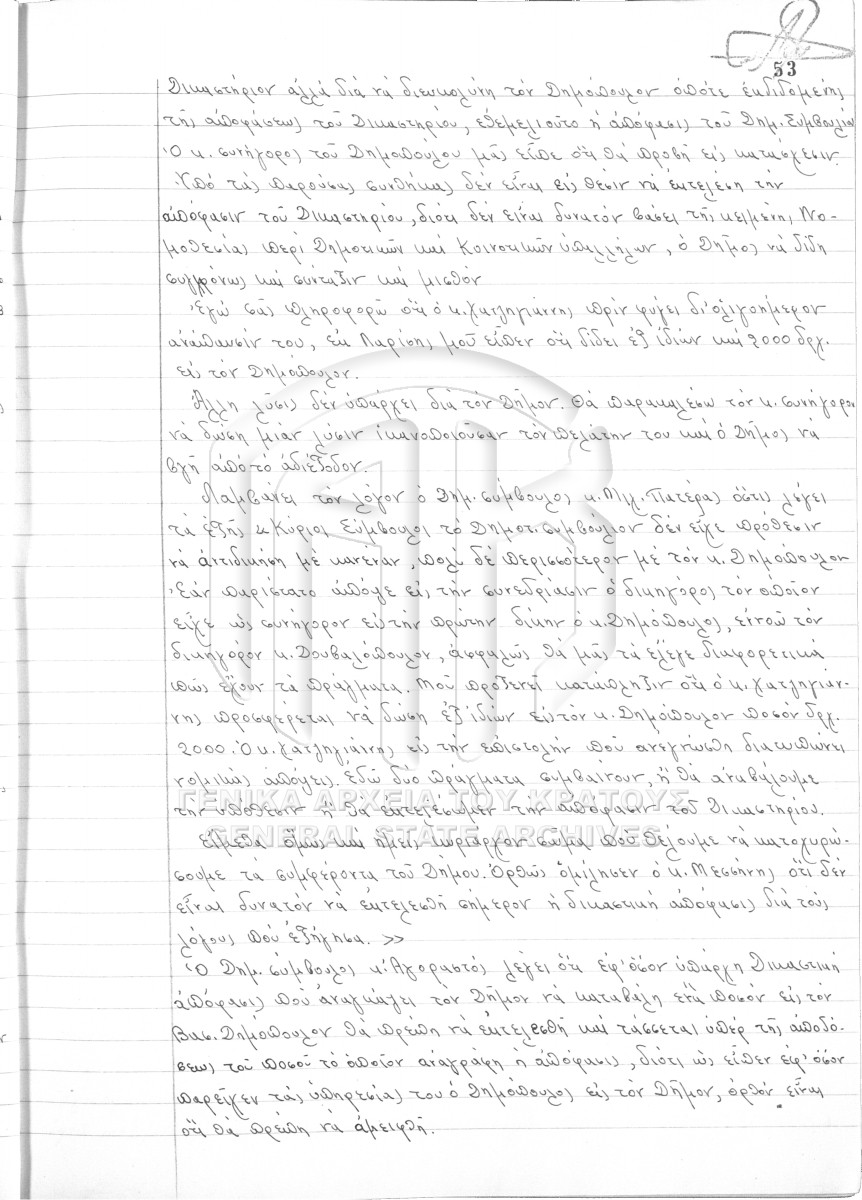 53
Δικαστήριον ἀλλά διά νά διευκολύνῃ τόν Δημόπουλον ὁπότε ἐκδιδομένης
τῆς ἀποφάσεως τοῦ Δικαστηρίου, ἐθεμελιοῦτο ἡ ἀπόφασις τοῦ Δημ. Συμβουλίου
Ὁ κ. συνήγορος τοῦ Δημοπούλου μᾶς εἶπε ὅτι θά προβῇ εἰς κατάσχεσιν.
Ὑπό τάς παρούσας συνθήκας δέν εἶναι εἰς θέσιν νά ἐκτελέσῃ τήν
ἀπόφασιν τοῦ Δικαστηρίου, διότι δέν εἶναι δυνατόν βάσει τῆς κειμένης Νο-
μοθεσίας περί Δημοτικῶν καί Κοινοτικῶν ὑπαλλήλων, ὁ Δῆμος νά δίδῃ
συγχρόνως καί σύνταξιν καί μισθόν
Ἐγώ σᾶς πληροφορῶ ὅτι ὁ κ. Χατζηγιάννης πρίν φύγει δι' ὀλιγοήμερον
ἀνάπαυσίν του, ἐκ Λαρίσης μοῦ εἶπεν ὅτι δίδει ἐξ ἰδίων καί 2000 δρχ.
εἰς τόν Δημόπουλον.
Ἄλλη λύσις δέν ὑπάρχει διά τόν Δῆμον. Θά παρακαλέσω τόν κ. συνήγορον
νά δώσῃ μίαν λύσιν ἱκανοποιοῦσαν τόν πελάτην του καί ὁ Δῆμος νά
βγῇ ἀπό τό ἀδιέξοδον.
Λαμβάνει τόν λόγον ὁ Δημ. σύμβουλος κ. Μιχ. Πατέρας ὅστις λέγει
τά ἑξῆς « Κύριοι Σύμβουλοι τό Δημοτ. συμβούλιον δέν εἶχε πρόθεσιν
νά ἀντιδικήσῃ μέ κανέναν, πολύ δέ περισσότερον μέ τόν κ. Δημόπουλον
Ἐάν παρίστατο ἀπόψε εἰς τήν συνεδρίασιν ὁ δικηγόρος τόν ὁποῖον
εἶχε ὡς συνήγορον εἰς τήν πρώτην δίκην ὁ κ. Δημόπουλος, ἐννοῶ τόν
δικηγόρον κ. Δουβαλόπουλον, ἀσφαλῶς θά μᾶς τά ἔλεγε διαφορετικά
πῶς ἔχουν τά πράγματα. Μοῦ προξενεῖ κατάπληξιν ὅτι ὁ κ. Χατζηγιάν-
νης προσφέρεται νά δώσῃ ἐξ ἰδίων εἰς τόν κ. Δημόπουλον ποσόν δρχ.
2000. Ὁ κ. Χατζηγιάννης εἰς τήν ἐπιστολήν πού ἀνεγνώσθη διατυπώνει
νομικάς ἀπόψεις. Ἐδῶ δύο πράγματα συμβαίνουν, ἤ θά ἀναβάλουμε
τήν ὑπόθεσιν ἤ θά ἐκτελέσωμεν τήν ἀπόφασιν τοῦ Δικαστηρίου.
Εἴμεθα ὅμως καί ἡμεῖς κυρίαρχον σῶμα πού θέλουμε νά κατοχυρώ-
σουμε τά συμφέροντα τοῦ Δήμου. Ὀρθῶς ὁμίλησεν ὁ κ. Μεσσήνης ὅτι δέν
εἶναι δυνατόν νά ἐκτελεσθῇ σήμερον ἡ δικαστική ἀπόφασις διά τούς
λόγους πού ἐξήγησα. »
Ὁ Δημ. σύμβουλος κ. Ἀγοραστός λέγει ὅτι ἐφ' ὅσον ὑπάρχῃ Δικαστική
ἀπόφασις πού ἀναγκάζει τόν Δῆμον νά καταβάλῃ ἕνα ποσόν εἰς τόν
Βασ. Δημόπουλον θά πρέπῃ νά ἐκτελεσθῇ καί τάσσεται ὑπέρ τῆς ἀποδό-
σεως τοῦ ποσοῦ τό ὁποῖον ἀναγράφῃ ἡ ἀπόφασις, διότι ὡς εἶπεν ἐφ' ὅσον
παρεῖχεν τάς ὑπηρεσίας του ὁ Δημόπουλος εἰς τόν Δῆμον, ὀρθόν εἶναι
ὅτι θά πρέπῃ νά ἀμειφθῇ.
ΓΕΝΙΚΑ ΑΡΧΕΙΑ ΤΟΥ ΚΡΑΤΟΥΣ
GENERAL STATE ARCHIVES